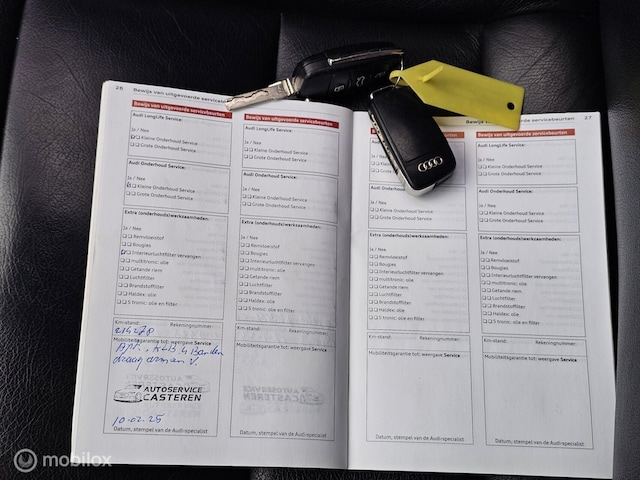 26 Bewijs van uitgevoerde
Bewijs van uitgevoerde servicebeurten
Audi LongLife Service:
Ja / Nee
Kleine Onderhoud Service
Grote Onderhoud Service
Audi Onderhoud Service:
Ja / Nee
Kleine Onderhoud Service
Grote Onderhoud Service
Extra (onderhouds)werkzaamheden:
Ja / Nee
Remvloeistof
Bougies
Interieurluchtfilter vervangen
multitronic: olie
Getande riem
Luchtfilter
Brandstoffilter
Haldex: olie
S tronic: olie en filter
Km-stand: Rekeningnummer:
Mobiliteitsgarantie tot: weergave Service
4 Banden
draagarmen V.
AUTOSERVICE
CASTEREN
10-02-25
Datum, stempel van de Audi-specialist
Bewijs van uitgevoerde servicebeurten
Audi LongLife Service:
Ja / Nee
Kleine Onderhoud Service
Grote Onderhoud Service
Audi Onderhoud Service:
Ja / Nee
Kleine Onderhoud Service
Grote Onderhoud Service
Extra (onderhouds)werkzaamheden:
Ja / Nee
Remvloeistof
Bougies
Interieurluchtfilter vervangen
multitronic: olie
Getande riem
Luchtfilter
Brandstoffilter
Haldex: olie
S tronic: olie en filter
Km-stand: Rekeningnummer:
Mobiliteitsgarantie tot: weergave Service
Datum, stempel van de Audi-specialist
Bewijs van uitgevoerde servicebeurten 27
Audi Onderhoud
Ja / Nee
Kleine Onderhoud Service
Grote Onderhoud Service
Extra (onderhouds)werkzaamheden:
Ja / Nee
Remvloeistof
Bougies
Interieurluchtfilter vervangen
multitronic: olie
Getande riem
Luchtfilter
Brandstoffilter
Haldex: olie
S tronic: olie en filter
Km-stand: Rekeningnummer:
Mobiliteitsgarantie tot: weergave Service
Datum, stempel van de Audi-specialist
Bewijs van uitgevoerde servicebeurten
Audi LongLife Service:
Ja / Nee
Kleine Onderhoud Service
Grote Onderhoud Service
Audi Onderhoud Service:
Ja / Nee
Kleine Onderhoud Service
Grote Onderhoud Service
Extra (onderhouds)werkzaamheden:
Ja / Nee
Remvloeistof
Bougies
Interieurluchtfilter vervangen
multitronic: olie
Getande riem
Luchtfilter
Brandstoffilter
Haldex: olie
S tronic: olie en filter
Km-stand: Rekeningnummer:
Mobiliteitsgarantie tot: weergave Service
Datum, stempel van de Audi-specialist
mobilox